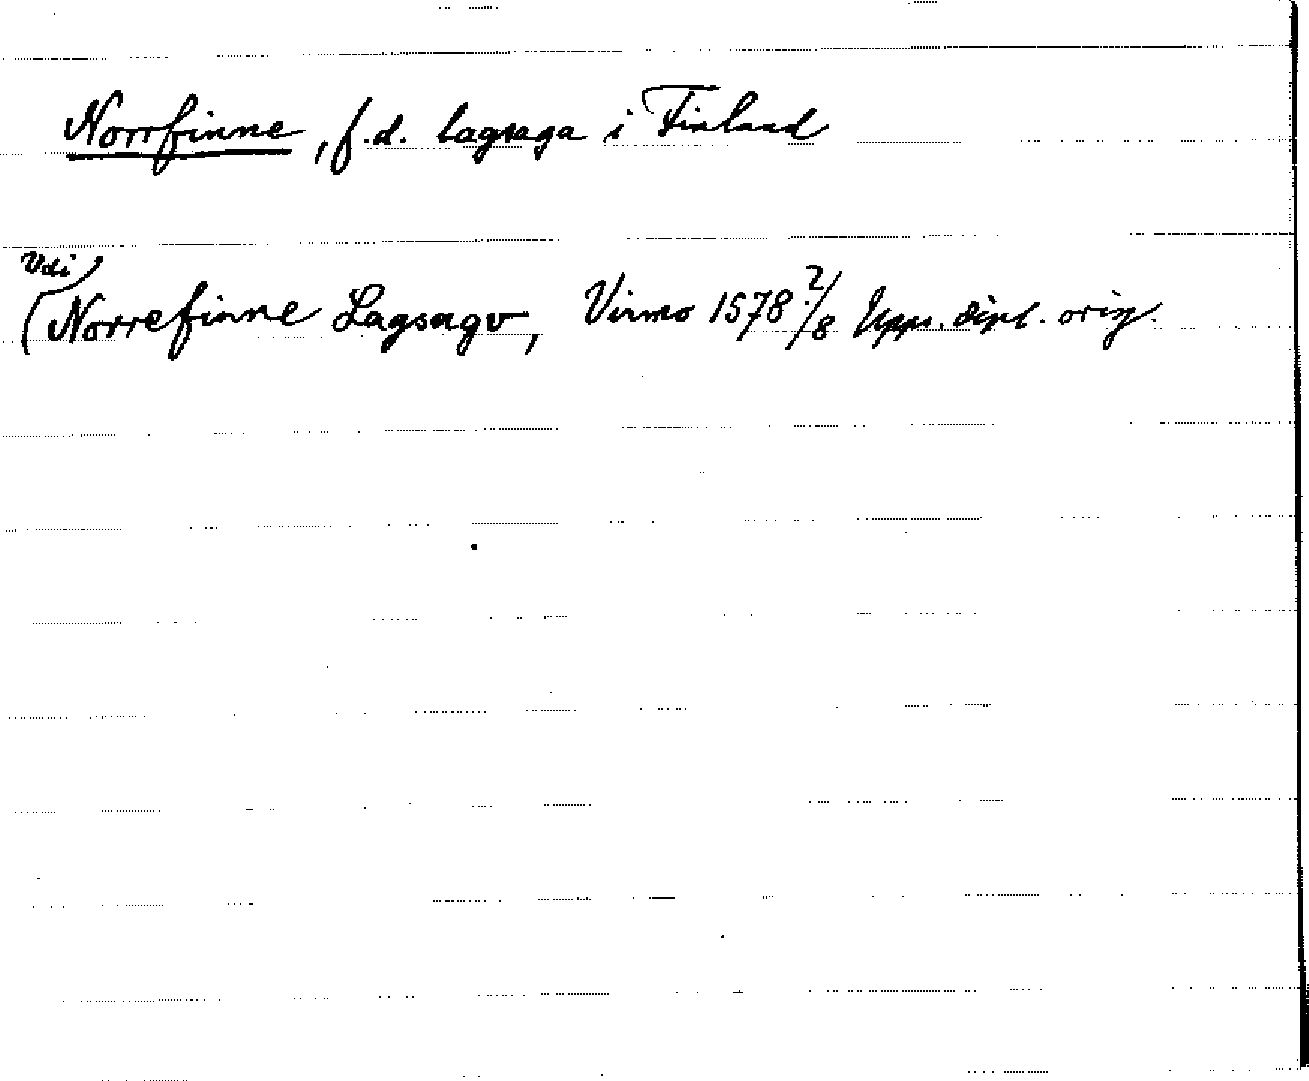 Norrfinne, f.d. lagsaga i Finland
(Vdi) Norrefinne Lagsagv, Virmo 1578 2/8 Upps. dipl. orig.